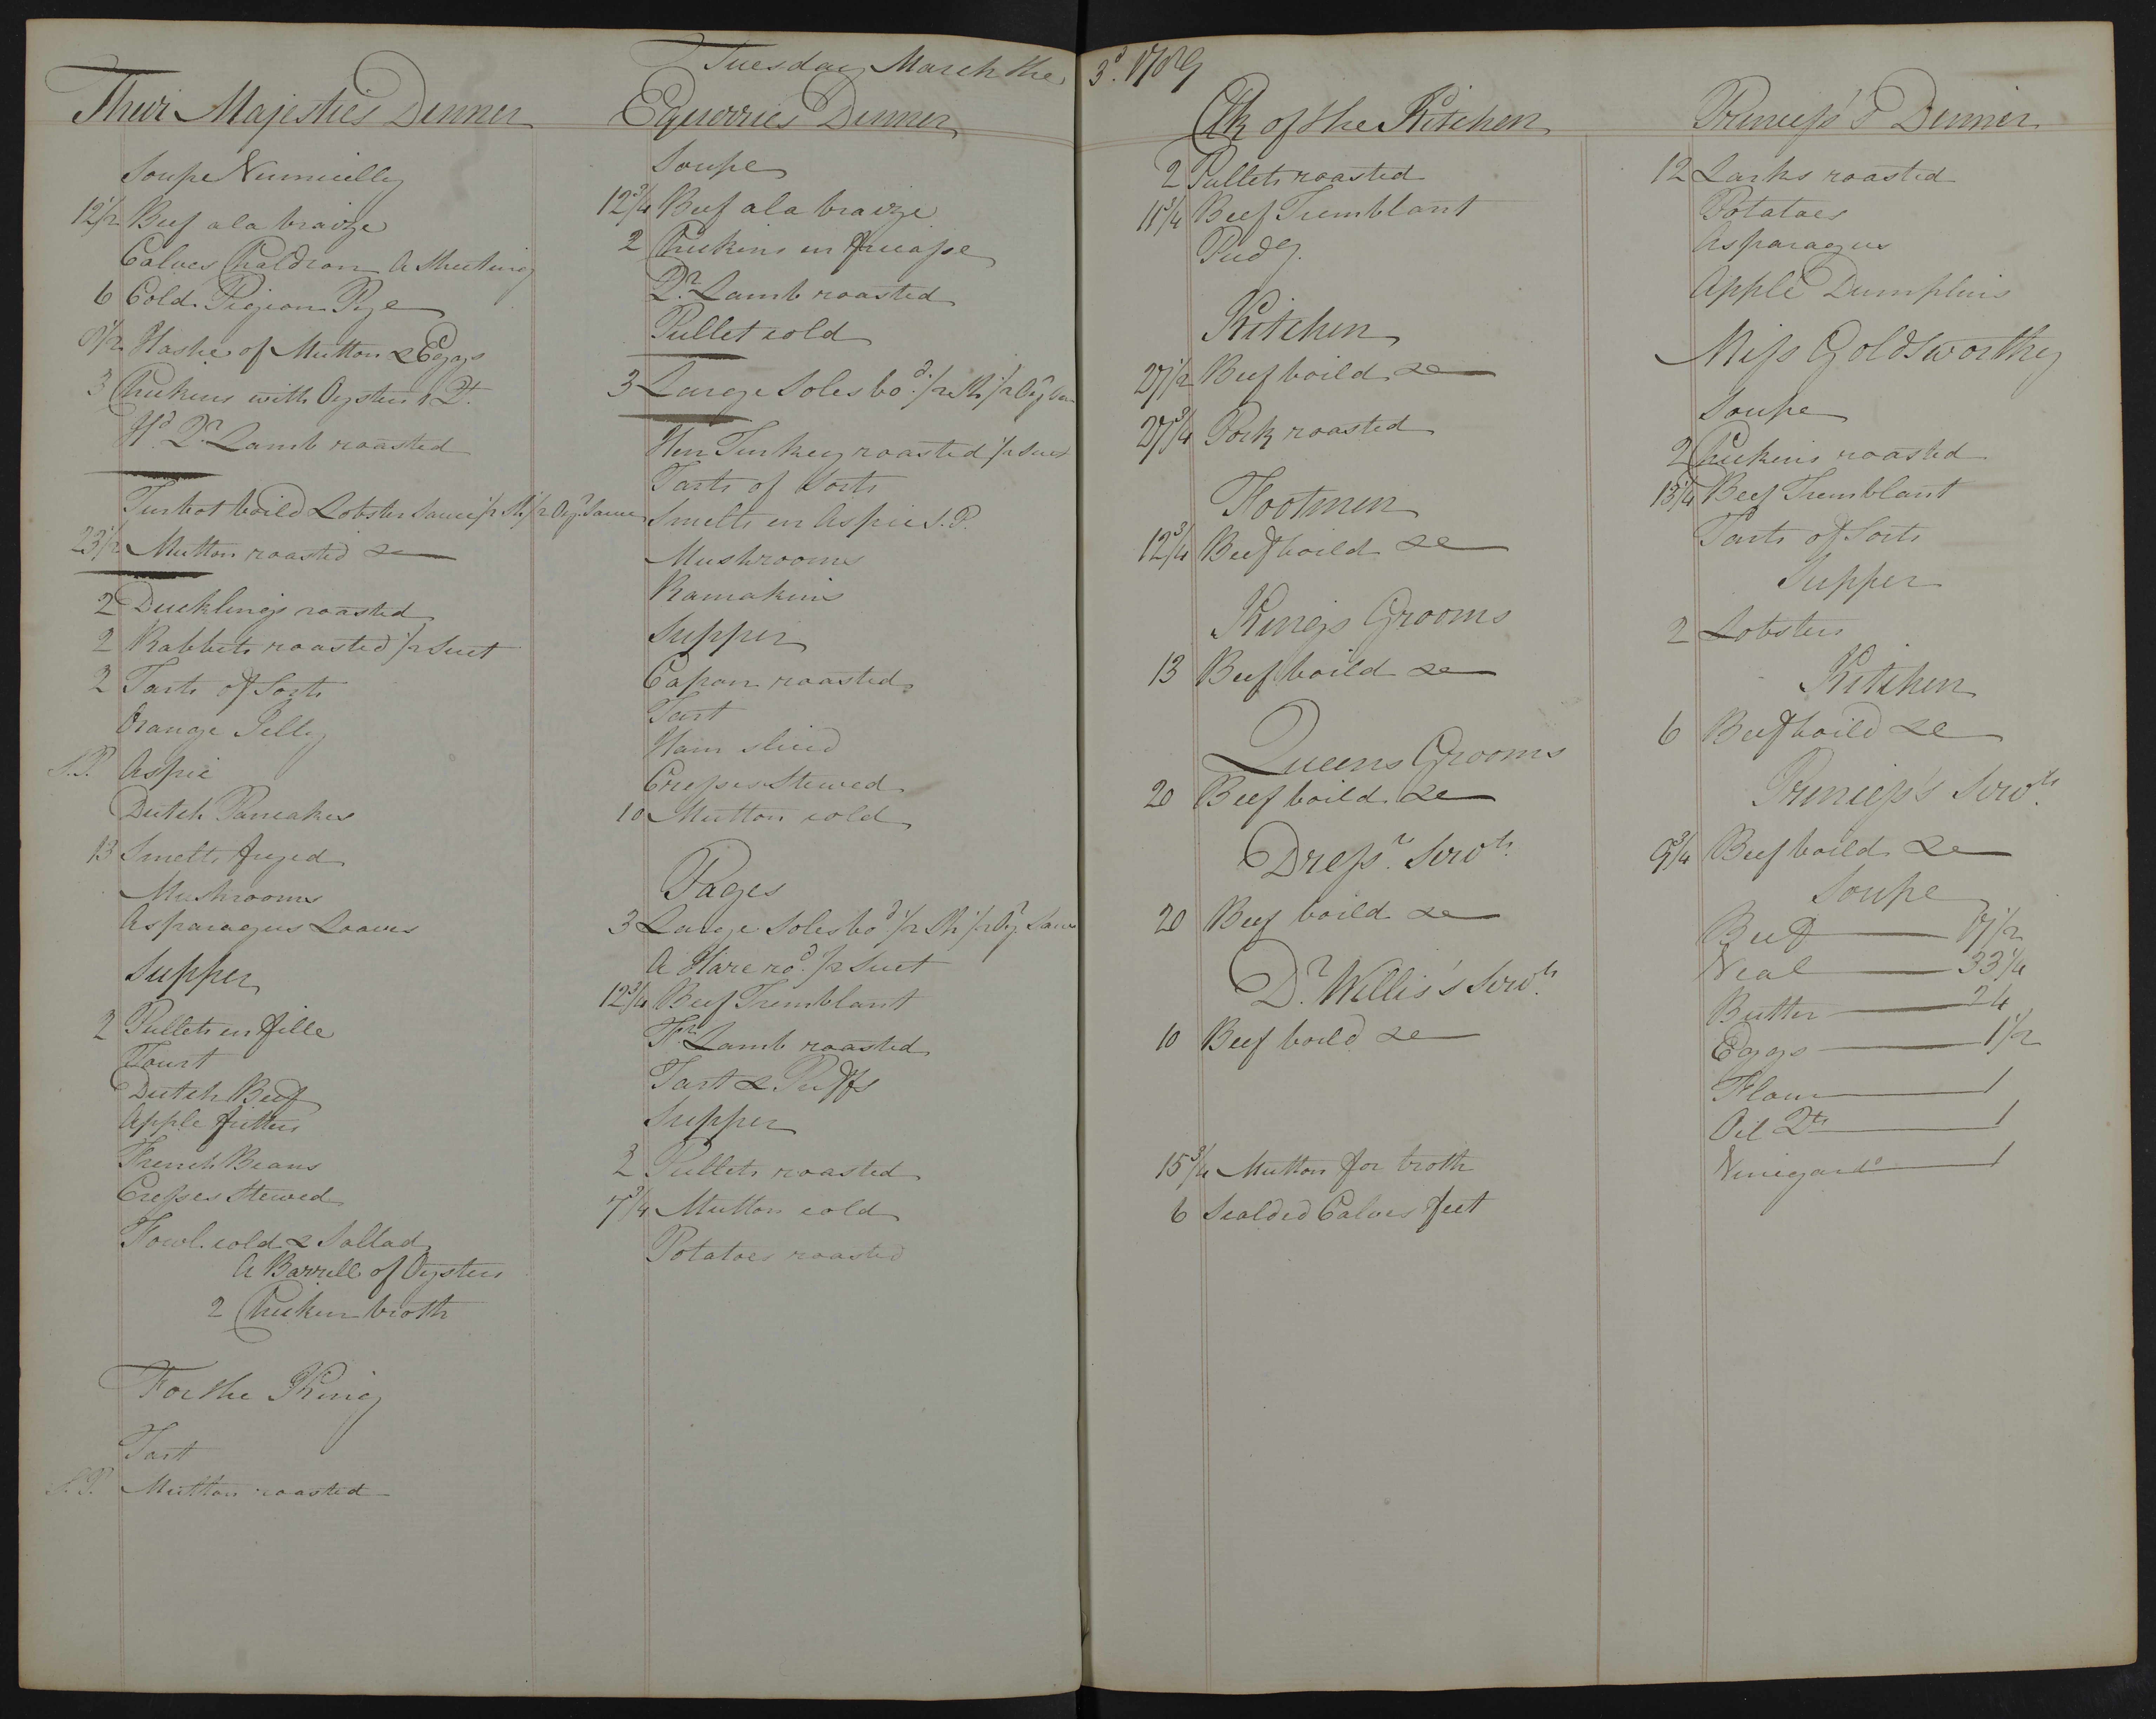 Tuesday March the 3d. 1789
Their Majesties Dinner
Soupe Vermicelly
12 1/2 Beef a la braize
Calves Chaldron A Sheeting
6 Cold Pigeon Pye
Hashe of Mutton & Eggs
3 Chickens with Oysters 1 Qt.
Hd. Qr. Lamb roasted
Turbot boild Lobster Sauce 1/2 Sh 1/2 Oyr. Sauce
23 1/2 Mutton roasted &c
2 Ducklings roasted
2 Rabbits roasted 1/2 Suet
2 Tarts of Sorts
Orange Jelly
S.P. Aspic
Dutch Pancakes
13 Smelts fryed
Mushrooms
Asparagus Loaves
Supper
2 Pullets en fille
Tourt
Dutch Beef
Apple fritters
French Beans
Cresses Stewed
Fowl cold & Sallad
A Barrell of Oysters
2 Chicken broth
For the King
Tart
S.P. Mutton roasted
Equerries Dinner
Soupe
12 3/4 Beef a la braize
2 Chickins en fricasse
Qr. Lamb roasted
Pullet cold
3 Large Soles bod. 1/2 Sh 1/2 Oyr Sau
Hen Turkey roasted 1/2 Suet
Tarts of Sorts
Smelts en Aspic S.P.
Mushrooms
Ramakins
Supper
Capon roasted
Tart
Ham sliced
Cresses Stewed
10 Mutton cold
Pages
3 Large Soles bod. 1/2 Sh 1/2 Oyr. Sauce
A Hare rod. 1/2 Suet
12 3/4 Beef Tremblant
Fr. Lamb roasted
Tart & Puffs
Supper
2 Pullets roasted
7 3/4 Mutton cold
Potatoes roasted
Clk of the Kitchen
2 Pullets roasted
11 3/4 Beef Tremblant
Pudg.
Kitchen
27 1/2 Beef boild &c
27 3/4 Pork roasted
Footmen
12 3/4 Beef boild &c
Kings Grooms
13 Beef boild &c
Queens Grooms
20 Beef boild &c
Dressr. Servts.
20 Beef boild &c
Dr. Willis's Servts.
10 Beef boild &c
15 3/4 Mutton for broth
6 Scalded Calves feet
Princess's Dinner
12 Larks roasted
Potatoes
Asparagus
Apple Dumplins
Miss Goldsworthy
Soupe
2 Chickens roasted
13 1/4 Beef Tremblant
Tarts of Sorts
Supper
2 Lobsters
Kitchen
6 Beef boild &c
Princess's Servts.
9 3/4 Beef boild &c
Soupe
Beef
Veal 33 1/4
Butter 24
Eggs 1 1/2
Flour 1
Oil Qts 1
Vinegar do 1